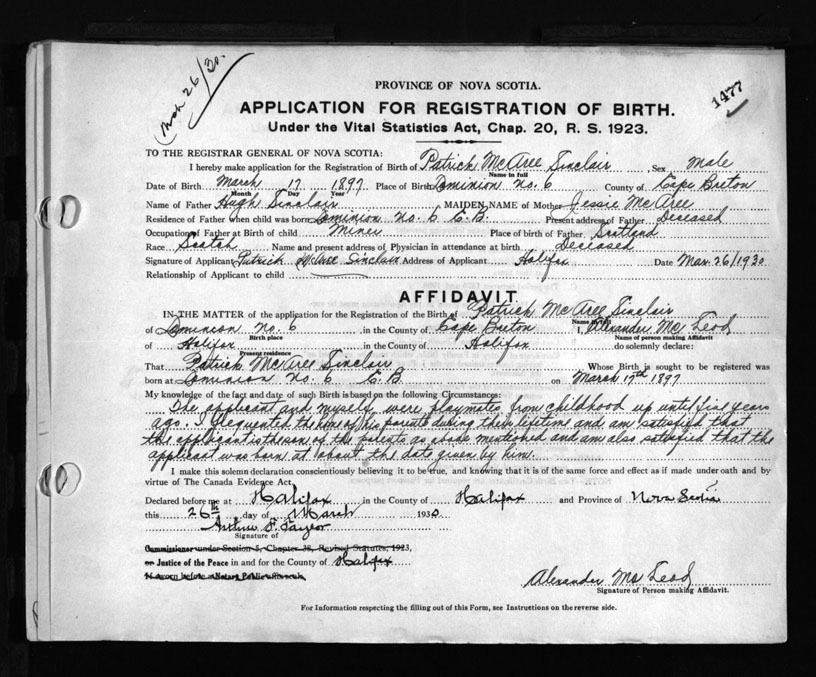 Mch 26/30.
1477
PROVINCE OF NOVA SCOTIA.
APPLICATION FOR REGISTRATION OF BIRTH.
Under the Vital Statistics Act, Chap. 20, R. S. 1923.
TO THE REGISTRAR GENERAL OF NOVA SCOTIA:
I hereby make application for the Registration of Birth of Patrick McAree Sinclair Sex Male
Name in full
Date of Birth March 17 1897 Place of Birth Dominion No. 6 County of Cape Breton
Month Day Year
Name of Father Hugh Sinclair MAIDEN NAME of Mother Jessie McAree
Residence of Father when child was born Dominion No. 6 C.B. Present address of Father Deceased
Occupation of Father at Birth of child Miner Place of birth of Father Scotland
Race Scotch Name and present address of Physician in attendance at birth Deceased
Signature of Applicant Patrick McAree Sinclair Address of Applicant Halifax Date Mar. 26/1930
Relationship of Applicant to child
AFFIDAVIT
IN THE MATTER of the application for the Registration of the Birth of Patrick McAree Sinclair
Name in full
of Dominion No. 6 in the County of Cape Breton I, Alexander McLeod
Birth place Name of person making Affidavit
of Halifax in the County of Halifax do solemnly declare:
Present residence
That Patrick McAree Sinclair Whose Birth is sought to be registered was
born at Dominion No. 6 C.B. on March 17th 1897
My knowledge of the fact and date of such Birth is based on the following Circumstances:
The applicant and myself were playmates from childhood up until five years
ago. I frequented the home of his parents during their lifetime and am satisfied that
the applicant is the son of the parents as above mentioned and am also satisfied that the
applicant was born at about the date given by him.
I make this solemn declaration conscientiously believing it to be true, and knowing that it is of the same force and effect as if made under oath and by
virtue of The Canada Evidence Act.
Declared before me at Halifax in the County of Halifax and Province of Nova Scotia
this 26th day of March 1930
Arthur F. Taylor
Signature of
Commissioner under Section 5, Chapter 38, Revised Statutes, 1923,
or Justice of the Peace in and for the County of Halifax
If sworn before a Notary Public
Alexander McLeod
Signature of Person making Affidavit.
For Information respecting the filling out of this Form, see Instructions on the reverse side.